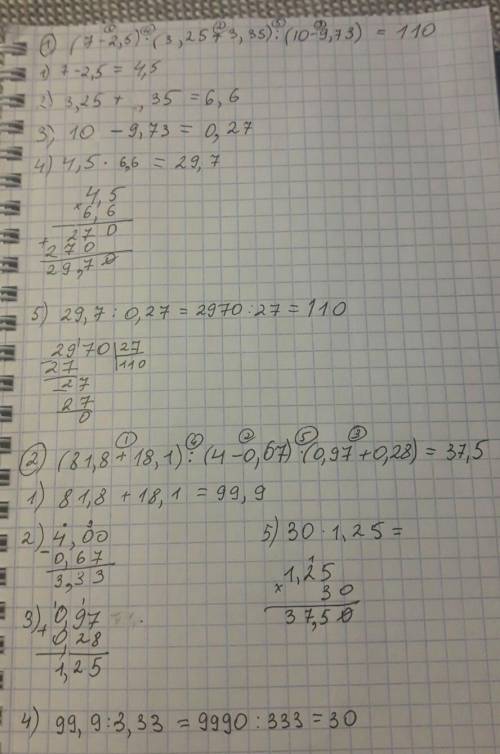 ① (7-2,5):(3,25+3,35):(10-9,73) = 110
1) 7-2,5 = 4,5
2) 3,25 + ,35 = 6,6
3) 10 - 9,73 = 0,27
4) 4,5 · 6,6 = 29,7
4,5
× 6,6
270
+ 270
29,70
5) 29,7 : 0,27 = 2970 : 27 = 110
2970 | 27
27 110
27
27
0
② (81,8 + 18,1) : (4-0,67) · (0,97 + 0,28) = 37,5
1) 81,8 + 18,1 = 99,9
2) 4,00
- 0,67
3,33
3) 0,97
+ 0,28
1,25
5) 30 · 1,25 =
1,25
× 30
37,50
4) 99,9 : 3,33 = 9990 : 333 = 30